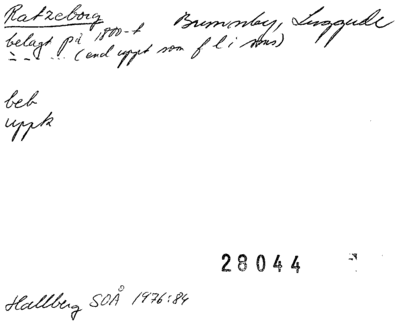 Ratzeborg Brunnby, Luggude
belagt på 1800-t
(end uppt som f l i sms)
beb
uppk
28044
Hallberg SOÅ 1976:84